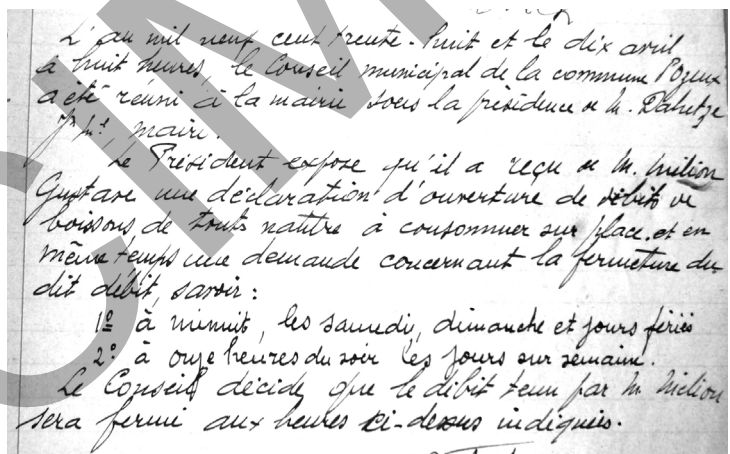 L'an mil neuf cent trente-huit et le dix avril
à huit heures, le Conseil municipal de la commune
a été réuni à la mairie sous la présidence de M.
maire.
Le Président expose qu'il a reçu de M.
Gustave une déclaration d'ouverture de débits de
boissons de toute nature à consommer sur place, et en
même temps une demande concernant la fermeture du
dit débit, savoir :
1º à minuit, les samedi, dimanche et jours fériés
2º à onze heures du soir les jours sur semaine.
Le Conseil décide que le débit tenu par M.
sera fermé aux heures ci-dessus indiquées.